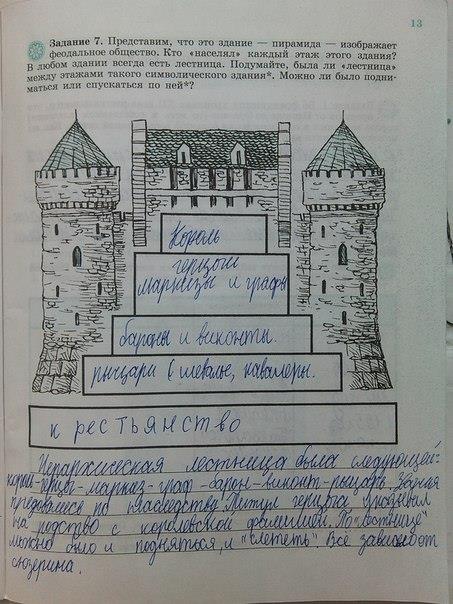 13
Задание 7. Представим, что это здание — пирамида — изображает
феодальное общество. Кто «населял» каждый этаж этого здания?
В любом здании всегда есть лестница. Подумайте, была ли «лестница»
между этажами такого символического здания*. Можно ли было подни-
маться или спускаться по ней*?
Король
герцоги
маркизы и графы
бароны и виконты.
рыцари (шевалье, кавалеры.
крестьянство
Иерархическая лестница была следующей:
король-герцог-маркиз-граф-барон-виконт-рыцарь. Звания
передавались по наследству. Титул герцога указывал
на родство с королевской фамилией. По "лестнице"
можно было и подняться, и "слететь". Всё зависело от
сюзерина.